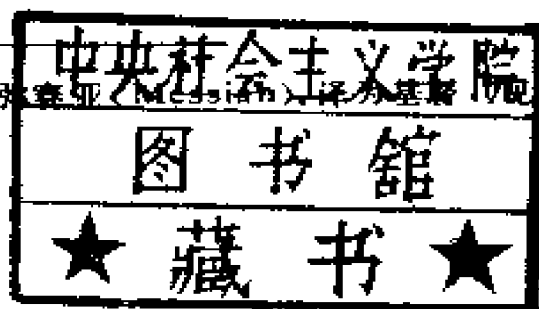 中央社会主义学院
弥赛亚(Messiah),译为基督
图书館
★ 藏书 ★